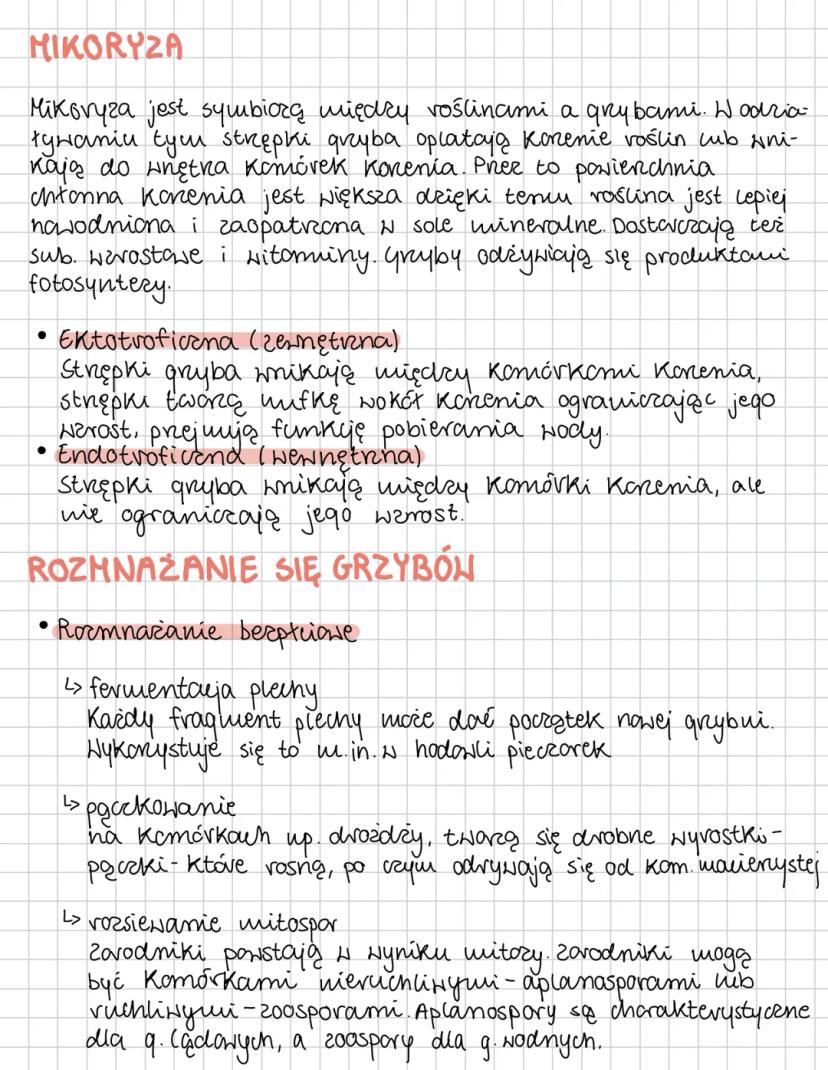 MIKORYZA
Mikoryza jest symbiozą między roślinami a grzybami. W oddzia-
ływaniu tym strzępki grzyba oplatają korzenie roślin lub wni-
kają do wnętrza komórek korzenia. Przez to powierzchnia
chłonna korzenia jest większa dzięki temu roślina jest lepiej
nawodniona i zaopatrzona w sole mineralne. Dostarczają też
sub. wzrostowe i witaminy. Grzyby odżywiają się produktami
fotosyntezy.
• Ektotroficzna (zewnętrzna)
Strzępki grzyba wnikają między komórkami korzenia,
strzępki tworzą mufkę wokół korzenia ograniczając jego
wzrost, przejmują funkcję pobierania wody.
• Endotroficzna (wewnętrzna)
Strzępki grzyba wnikają między komórki korzenia, ale
nie ograniczają jego wzrost.
ROZMNAŻANIE SIĘ GRZYBÓW
• Rozmnażanie bezpłciowe
↳ fermentacja plechy
Każdy fragment plechy może dać początek nowej grzybni.
Wykorzystuje się to m.in. w hodowli pieczarek
↳ pączkowanie
na komórkach np. drożdży, tworzą się drobne wyrostki-
pączki- które rosną, po czym odrywają się od kom. macierzystej
↳ rozsiewanie mitospor
Zarodniki powstają w wyniku mitozy. Zarodniki mogą
być komórkami nieruchliwymi - aplanosporami lub
ruchliwymi - zoosporami. Aplanospory są charakterystyczne
dla g. lądowych, a zoospory dla g. wodnych.